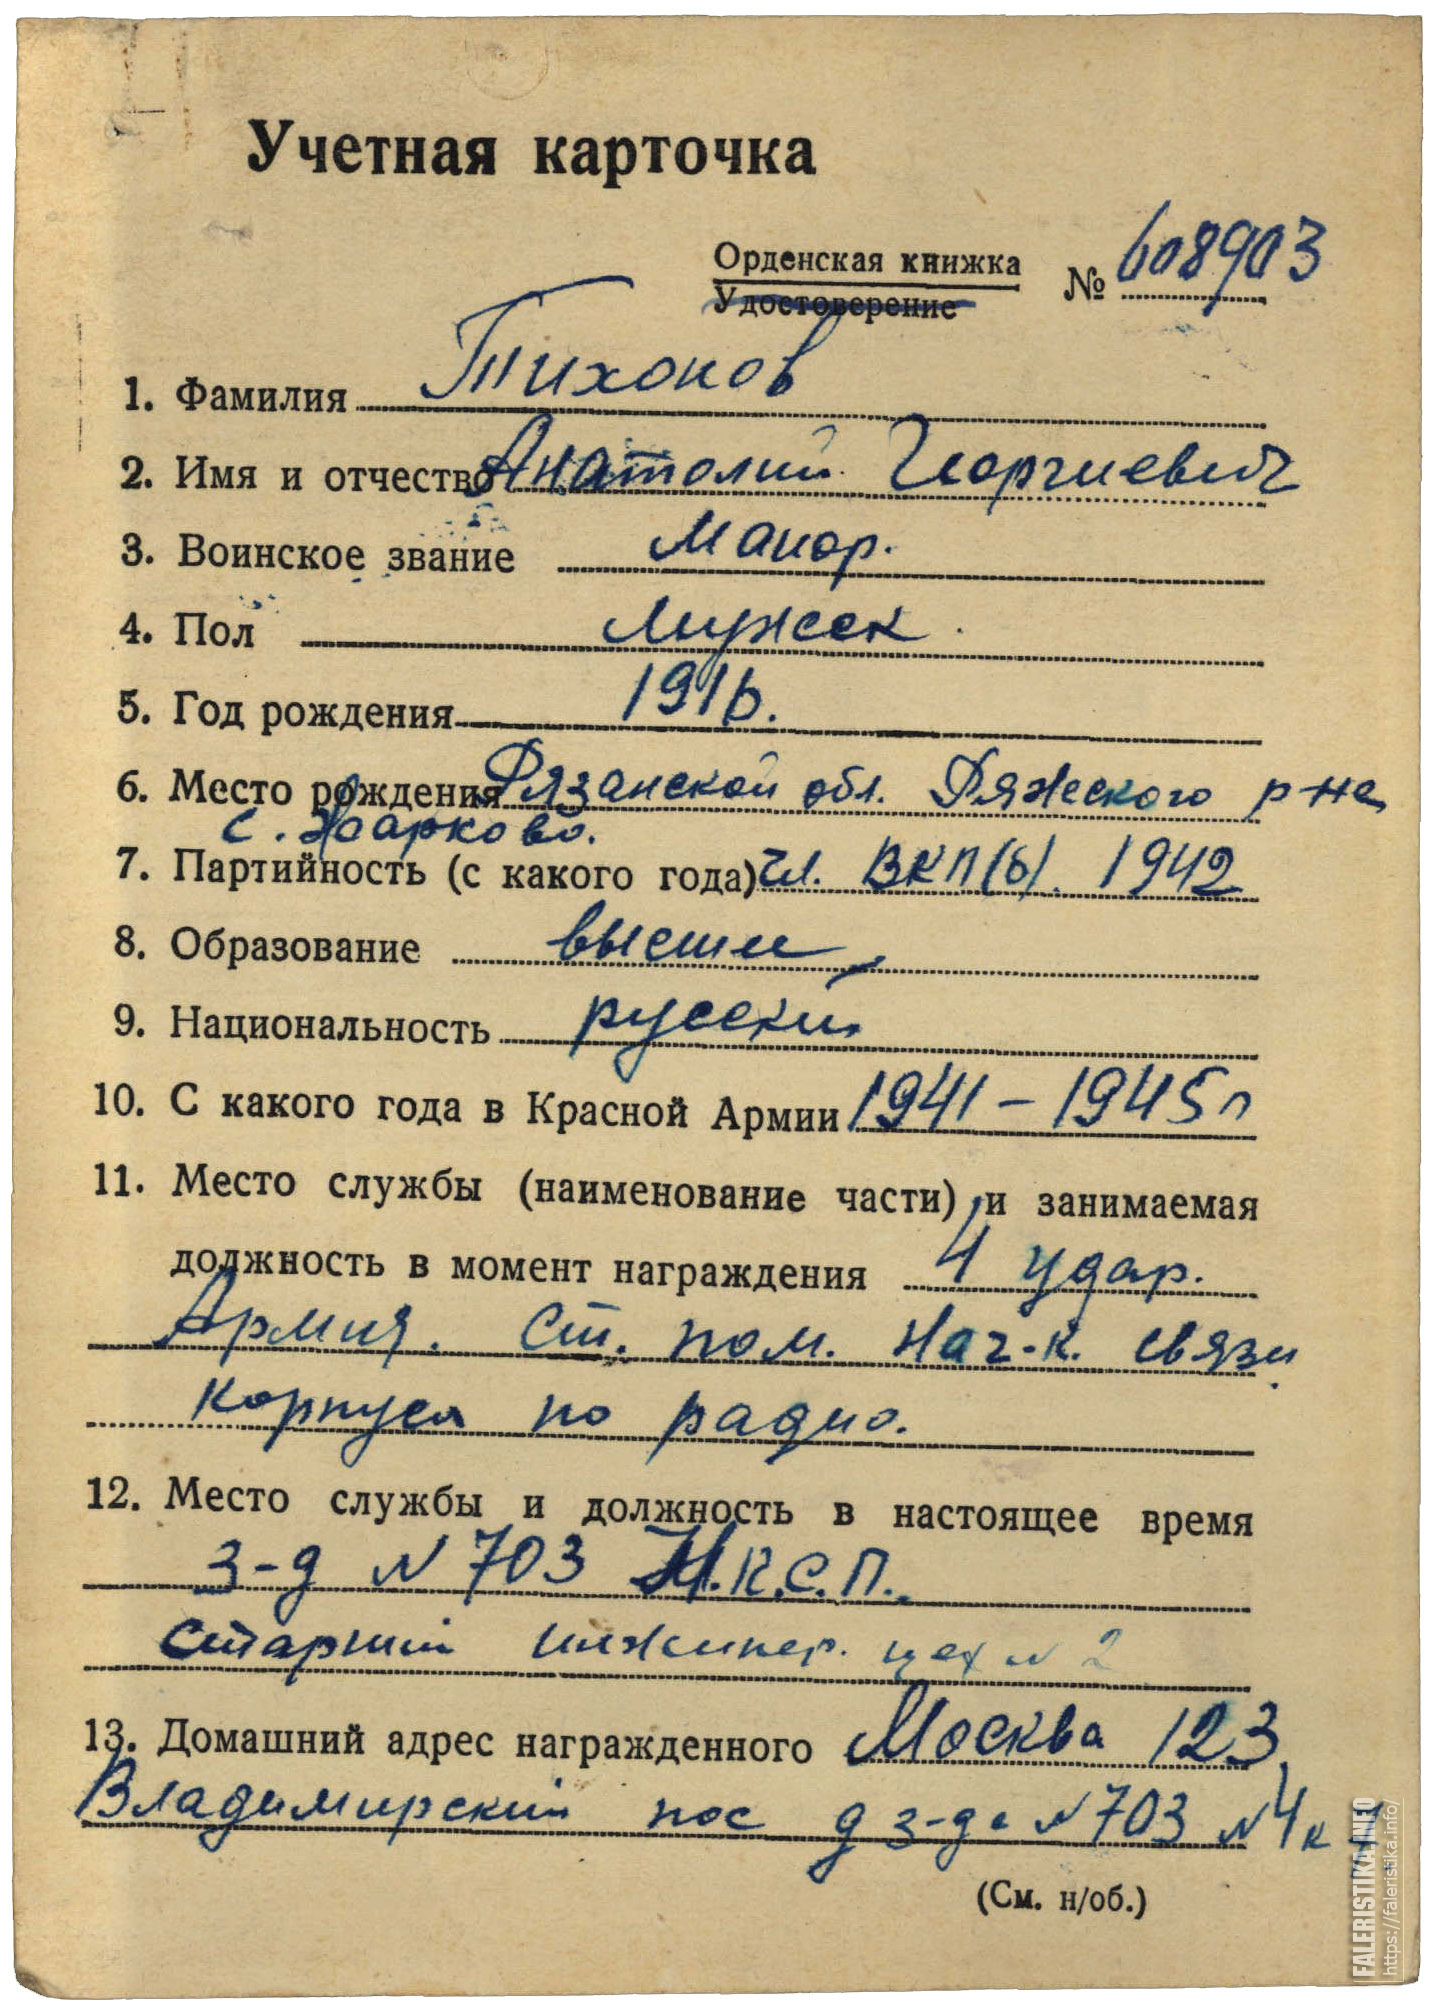 Учетная карточка
Орденская книжка
Удостоверение
№ 608903
1. Фамилия Тихонов
2. Имя и отчество Анатолий Георгиевич
3. Воинское звание Маиор.
4. Пол Мужск
5. Год рождения 1916.
6. Место рождения Рязанской обл. Ряжского р-на
с. Жарково.
7. Партийность (с какого года) чл. ВКП(б). 1942
8. Образование высшее
9. Национальность русский
10. С какого года в Красной Армии 1941 – 1945 г
11. Место службы (наименование части) и занимаемая
должность в момент награждения 4 удар.
Армия. Ст. пом. нач-к. связи
корпуса по радио.
12. Место службы и должность в настоящее время
з-д N 703 Н.К.С.П.
старший инженер. цех N 2
13. Домашний адрес награжденного Москва 123
Владимирский пос д з-да N 703 N 4 к
(См. н/об.)
FALERISTIKA.INFO
https://faleristika.info/